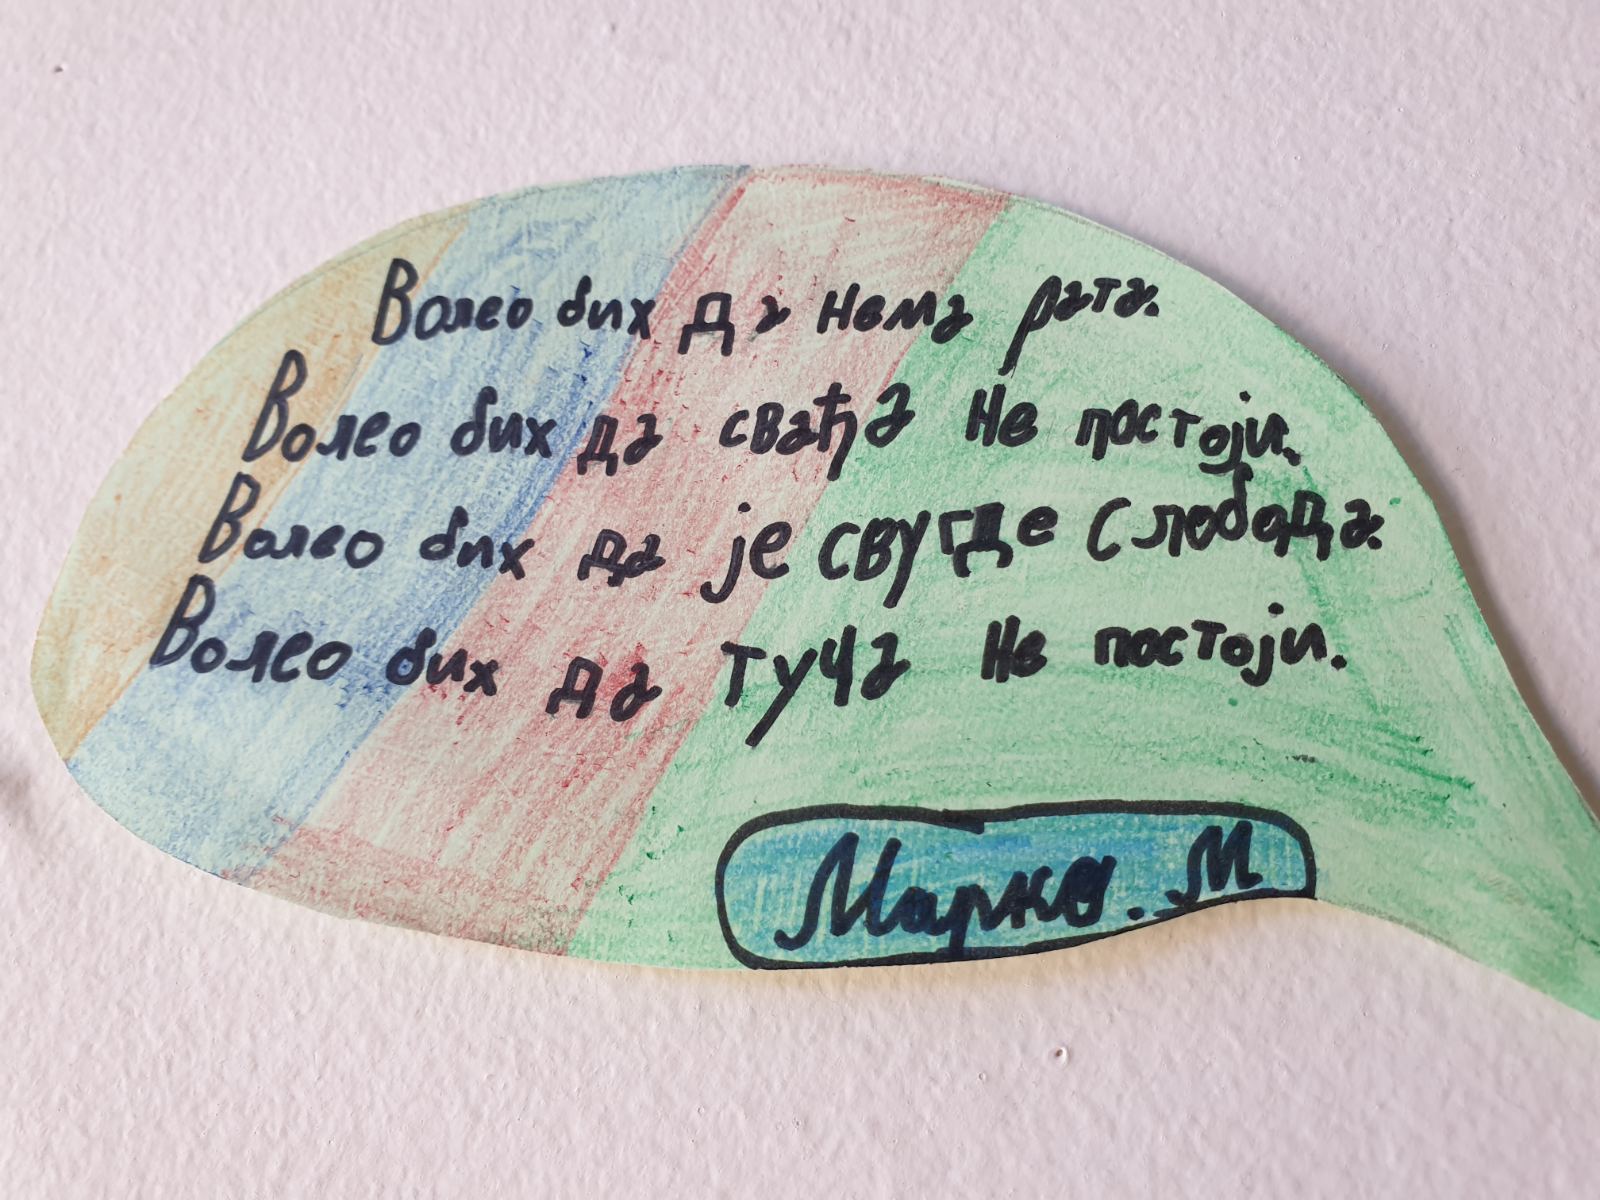 Волео бих да нема рата.
Волео бих да свађа не постоји.
Волео бих да је свугде слобода.
Волео бих да туча не постоји.
Марко. М